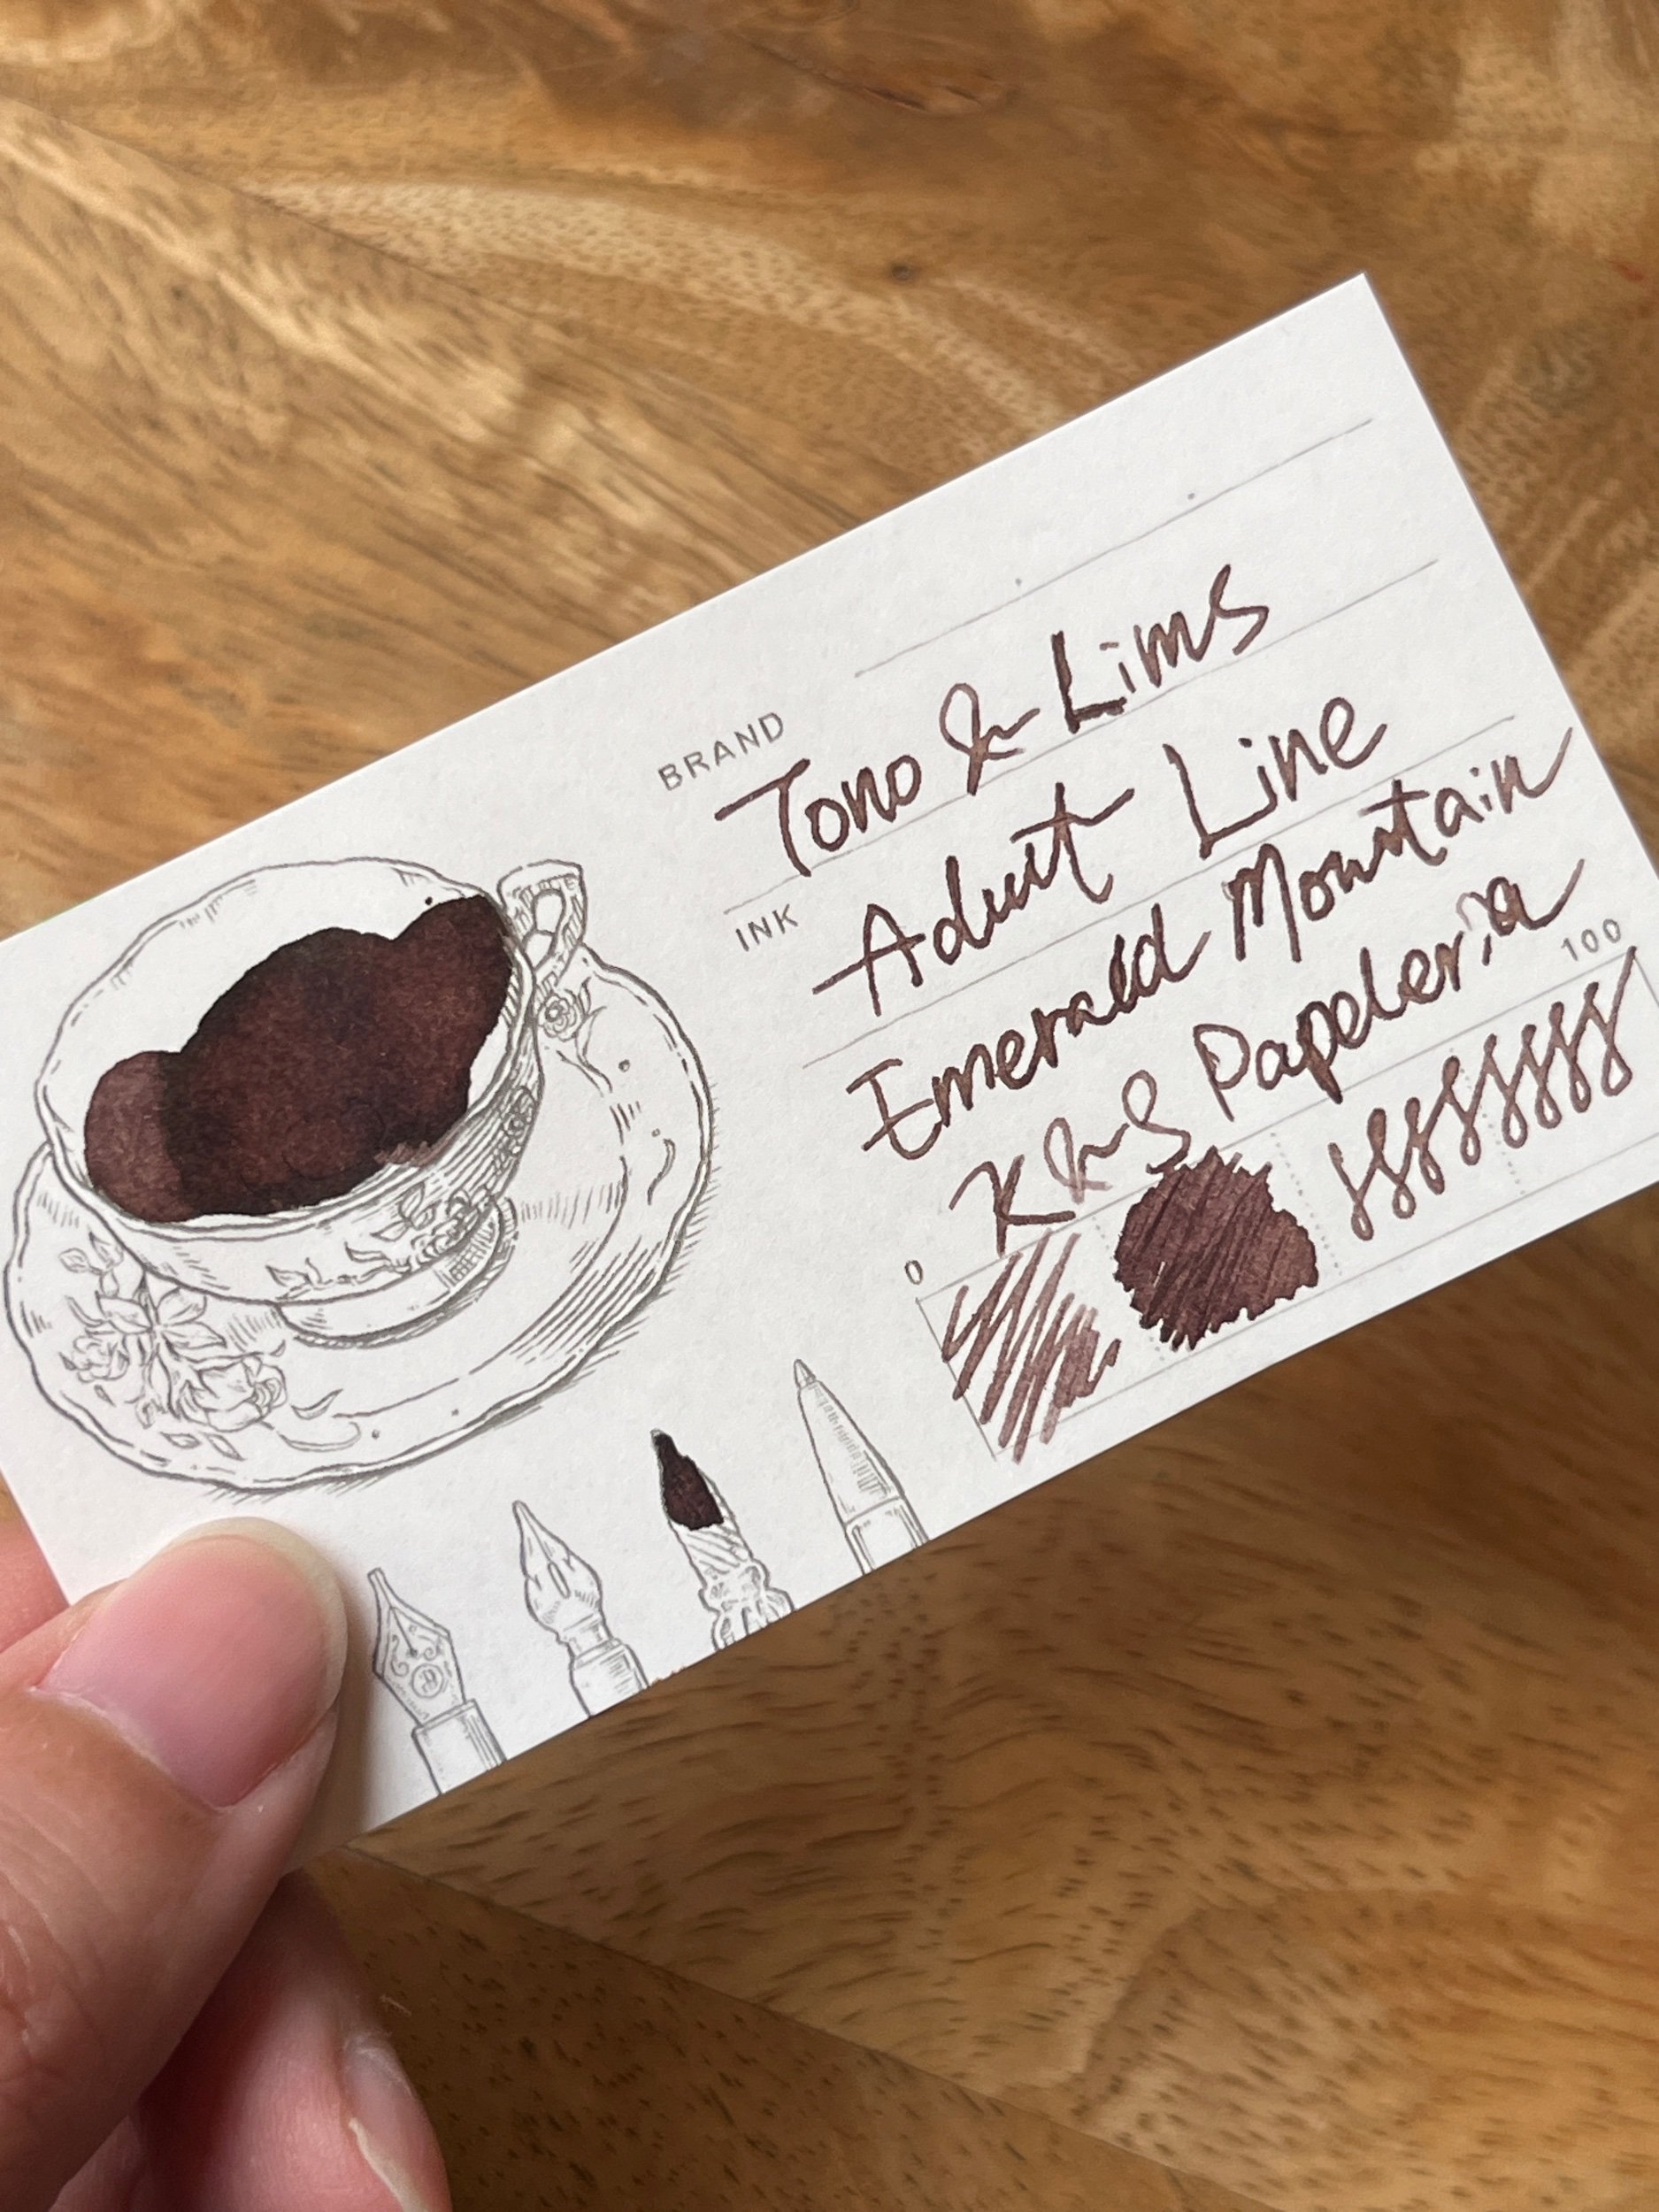 BRAND Tono & Lims
INK Adult Line
Emerald Mountain
K & S Papeleria
0 100